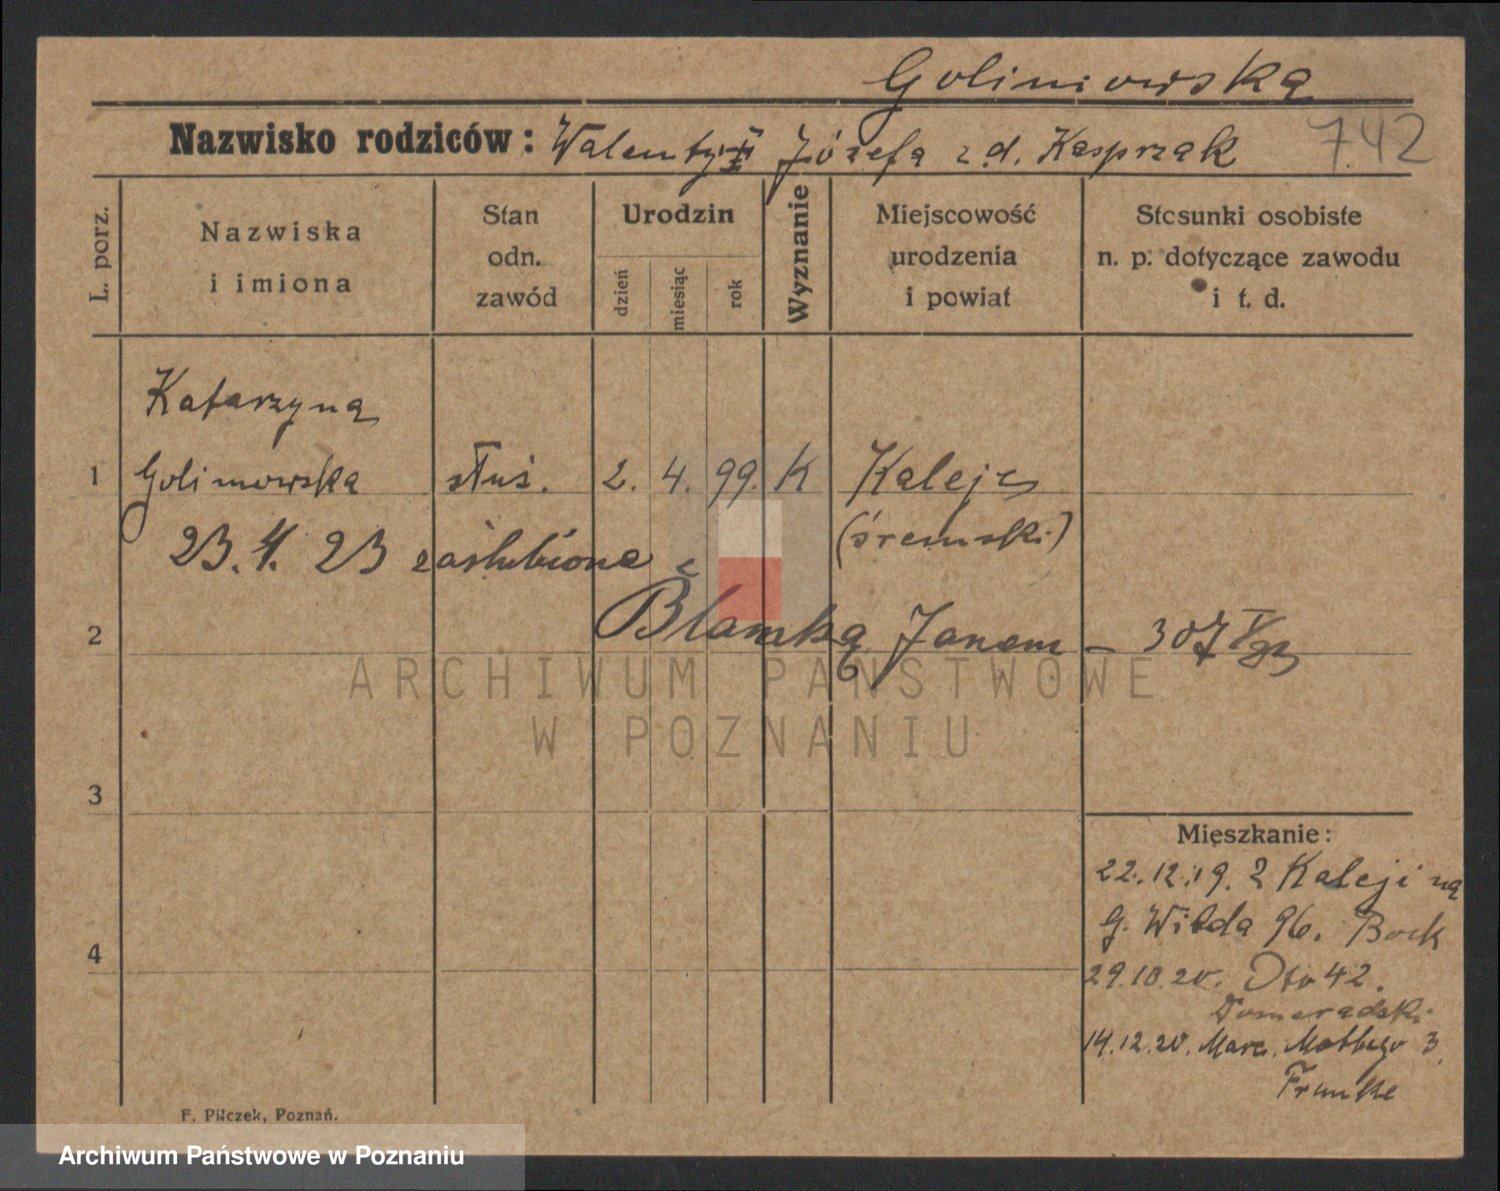 Goliniowska
Nazwisko rodziców: Walenty i Józefa z d. Kasprzak
742
L. porz.
Nazwiska
i imiona
Stan
odn.
zawód
Urodzin
dzień
miesiąc
rok
Wyznanie
Miejscowość
urodzenia
i powiat
Stosunki osobiste
n. p. dotyczące zawodu
i t. d.
Katarzyna
1 Golimowska słuś. 2. 4. 99. K Kaleje
(śremski)
23. 4. 23 zaślubiona z
2 Blamką Janem – 307
ARCHIWUM PAŃSTWOWE
W POZNANIU
3
Mieszkanie:
22.12.19. z Kaleji na
G. Wilda 96. Bock
4
29.10.20. Oto 42.
Domeradski
14.12.20. Marc. 3
Franke
F. Pilczek, Poznań.
Archiwum Państwowe w Poznaniu